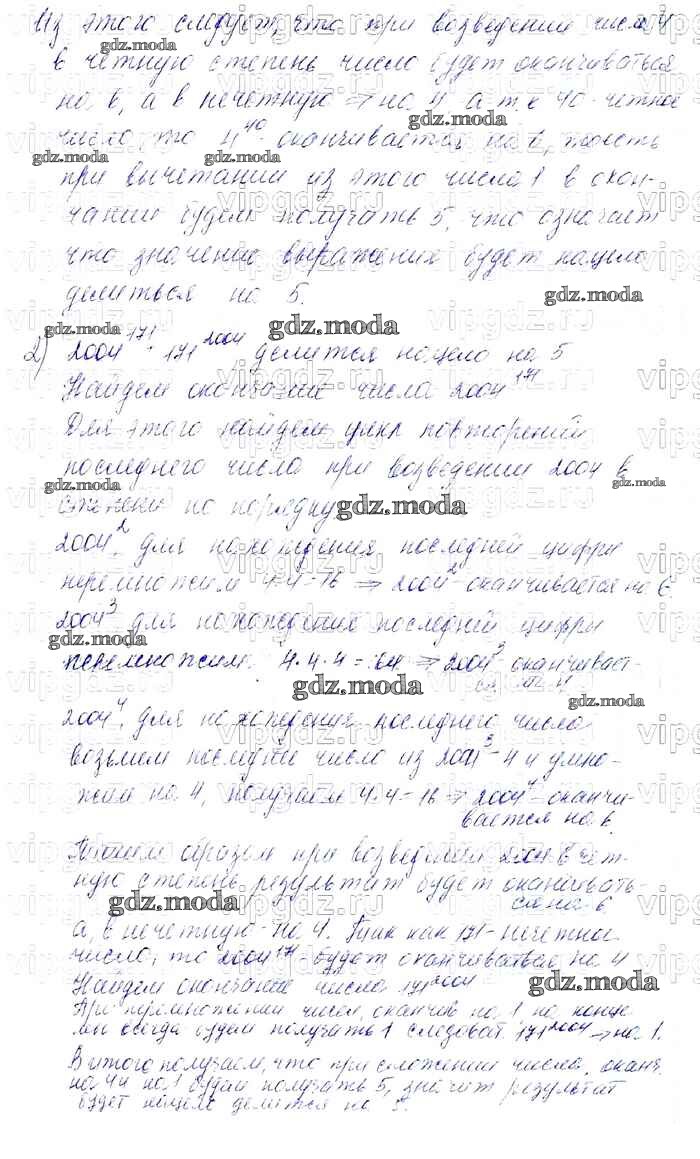 Из этого следует, что при возведении числа 4
в четную степень число будет оканчиваться
на 6, а в нечетную ⇒ на 4, а т.к 40 - четное
число, то 4^40 - оканчивается на 6, тоесть
при вычетании из этого числа 1 в окон-
чании будем получать 5, что означает
что значение выражения будет нацело
делиться на 5.
2) 2004^171 + 171^2004, делится нацело на 5
Найдем окончание числа 2004^171
Для этого найдем цикл повторений
последнего числа при возведении 2004 в
степени по порядку
2004^2, для нахождения последней цифры
перемножим 4·4=16 ⇒ 2004^2 - оканчивается на 6.
2004^3, для нахождения последней цифры
перемножим: 4·4·4=64 ⇒ 2004^3 оканчивает-
ся на 4
2004^4, для нахождения последнего числа
возьмем последнее число из 2004^3 - 4 и умно-
жим на 4, получаем 4·4=16 ⇒ 2004^4 - оканчи-
вается на 6.
Таким образом при возведении 2004 в чет-
ную степень результат будет оканчивать-
ся на 6
а, в нечетную - на 4. Так как 171 - нечетное
число, то 2004^171 - будет оканчиваться на 4
Найдем окончание числа 171^2004
При перемножении чисел, оканчив. на 1, на конце
мы всегда будем получать 1 следоват. 171^2004 ⇒ на 1.
В итоге получаем, что при сложении числа, оканч.
на 4 и на 1 будем получать 5, значит результат
будет нацело делится на 5.
gdz.moda
vipgdz.ru